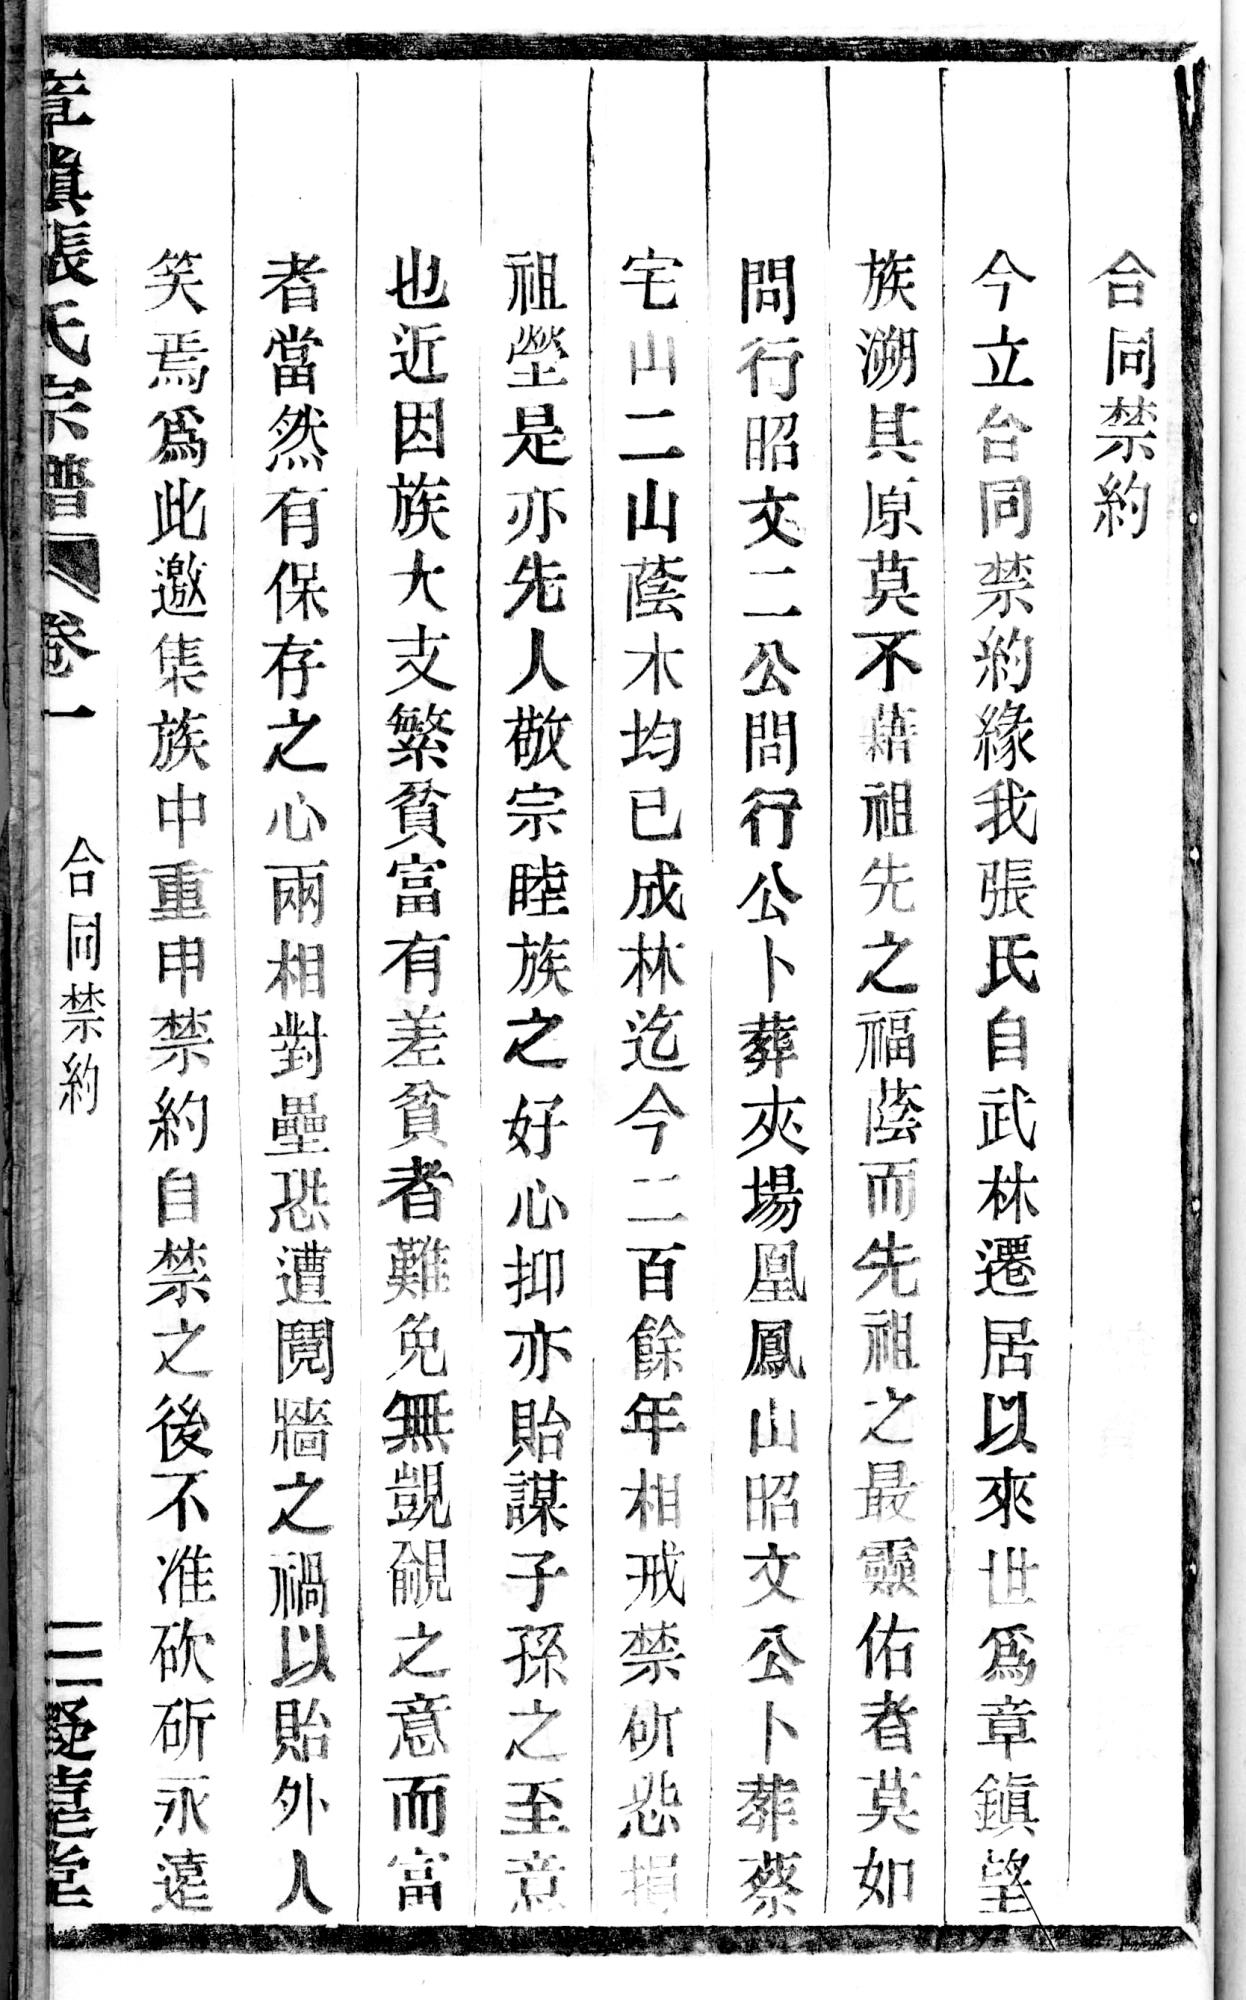 合同禁約
今立合同禁約緣我張氏自武林遷居以來世爲章鎮望
族溯其原莫不藉祖先之福蔭而先祖之最靈佑者莫如
問行昭文二公問行公卜葬夾場凰鳳山昭文公卜葬蔡
宅山二山蔭木均已成林迄今二百餘年相戒禁斫恐損
祖塋是亦先人敬宗睦族之好心抑亦貽謀子孫之至意
也近因族大支繁貧富有差貧者難免無覬覦之意而富
者當然有保存之心兩相對壘恐遭鬩牆之禍以貽外人
笑焉爲此邀集族中重申禁約自禁之後不准砍斫永遠
章鎮張氏宗譜 卷一 合同禁約 二